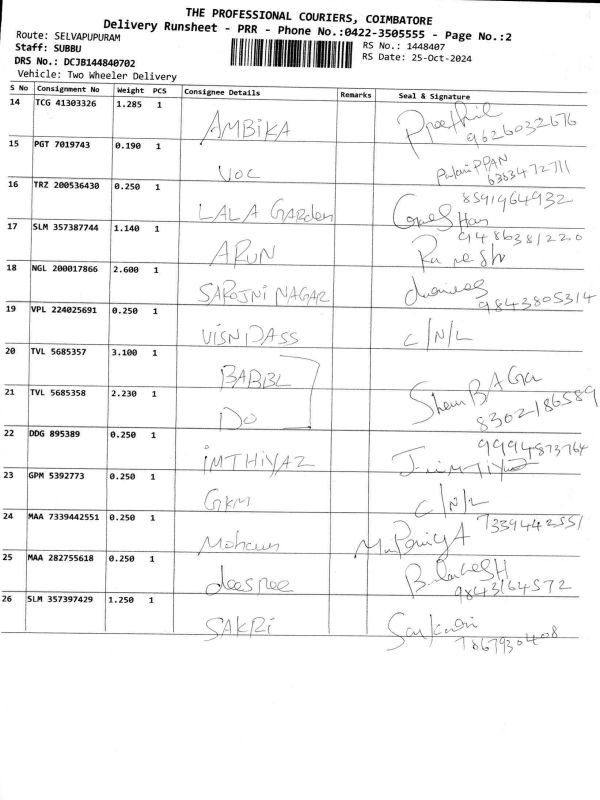 THE PROFESSIONAL COURIERS, COIMBATORE
Delivery Runsheet - PRR - Phone No.:0422-3505555 - Page No.:2
Route: SELVAPUPURAM
RS No.: 1448407
Staff: SUBBU
RS Date: 25-Oct-2024
DRS No.: DCJB144840702
Vehicle: Two Wheeler Delivery
S No Consignment No Weight PCS Consignee Details Remarks Seal & Signature
14 TCG 41303326 1.285 1 AMBIKA
9626032676
15 PGT 7019743 0.190 1 VOC
6383472711
16 TRZ 200536430 0.250 1 LALA GARden 8591964932
17 SLM 357387744 1.140 1 ARUN 9486381220
18 NGL 200017866 2.600 1 SAROJNI NAGAR
9843805314
19 VPL 224025691 0.250 1 VISNDASS C/N/L
20 TVL 5685357 3.100 1
21 TVL 5685358 2.230 1 DO
8302186589
22 DDG 895389 0.250 1 iMTHiYAZ 9994873764
23 GPM 5392773 0.250 1 GKM C/N/L
24 MAA 7339442551 0.250 1 7339442551
25 MAA 282755618 0.250 1
9843164572
26 SLM 357397429 1.250 1 SAKRi